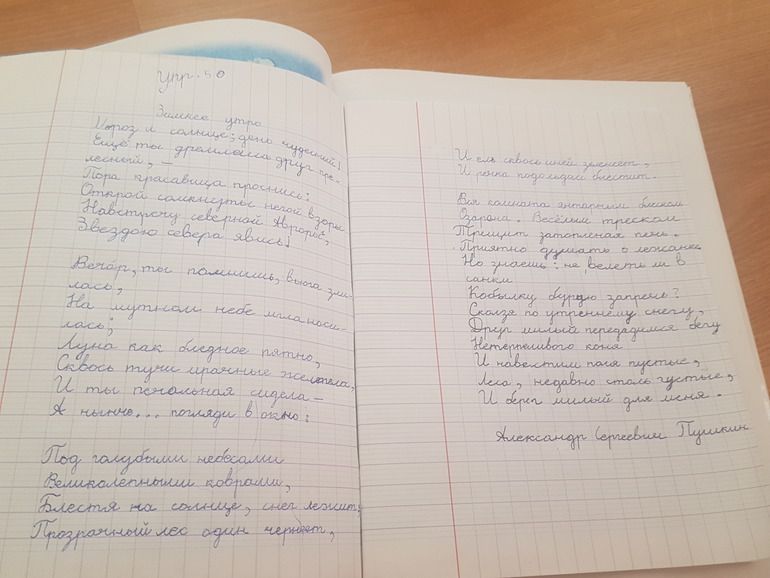 Упр. 50
Зимнее утро
Мороз и солнце; день чудесный!
Ещё ты дремлешь друг пре-
лестный, —
Пора красавица проснись:
Открой сомкнуты негой взоры
Навстречу северной Авроры,
Звездою севера явись!
Вечор, ты помнишь, вьюга зли-
лась,
На мутном небе мгла носи-
лась;
Луна как бледное пятно,
Сквозь тучи мрачные желтела,
И ты печальная сидела —
А нынче... погляди в окно:
Под голубыми небесами
Великолепными коврами,
Блестя на солнце, снег лежит;
Прозрачный лес один чернеет,
И ель сквозь иней зеленеет,
И речка подо льдом блестит.
Вся комната янтарным блеском
Озарена. Весёлым треском
Трещит затопленная печь.
Приятно думать о лежанке
Но знаешь: не велеть ли в
санки
Кобылку бурую запречь?
Скользя по утреннему снегу,
Друг милый предадимся бегу
Нетерпеливого коня
И навестим поля пустые,
Леса, недавно столь густые,
И берег милый для меня.
Александр Сергеевич Пушкин